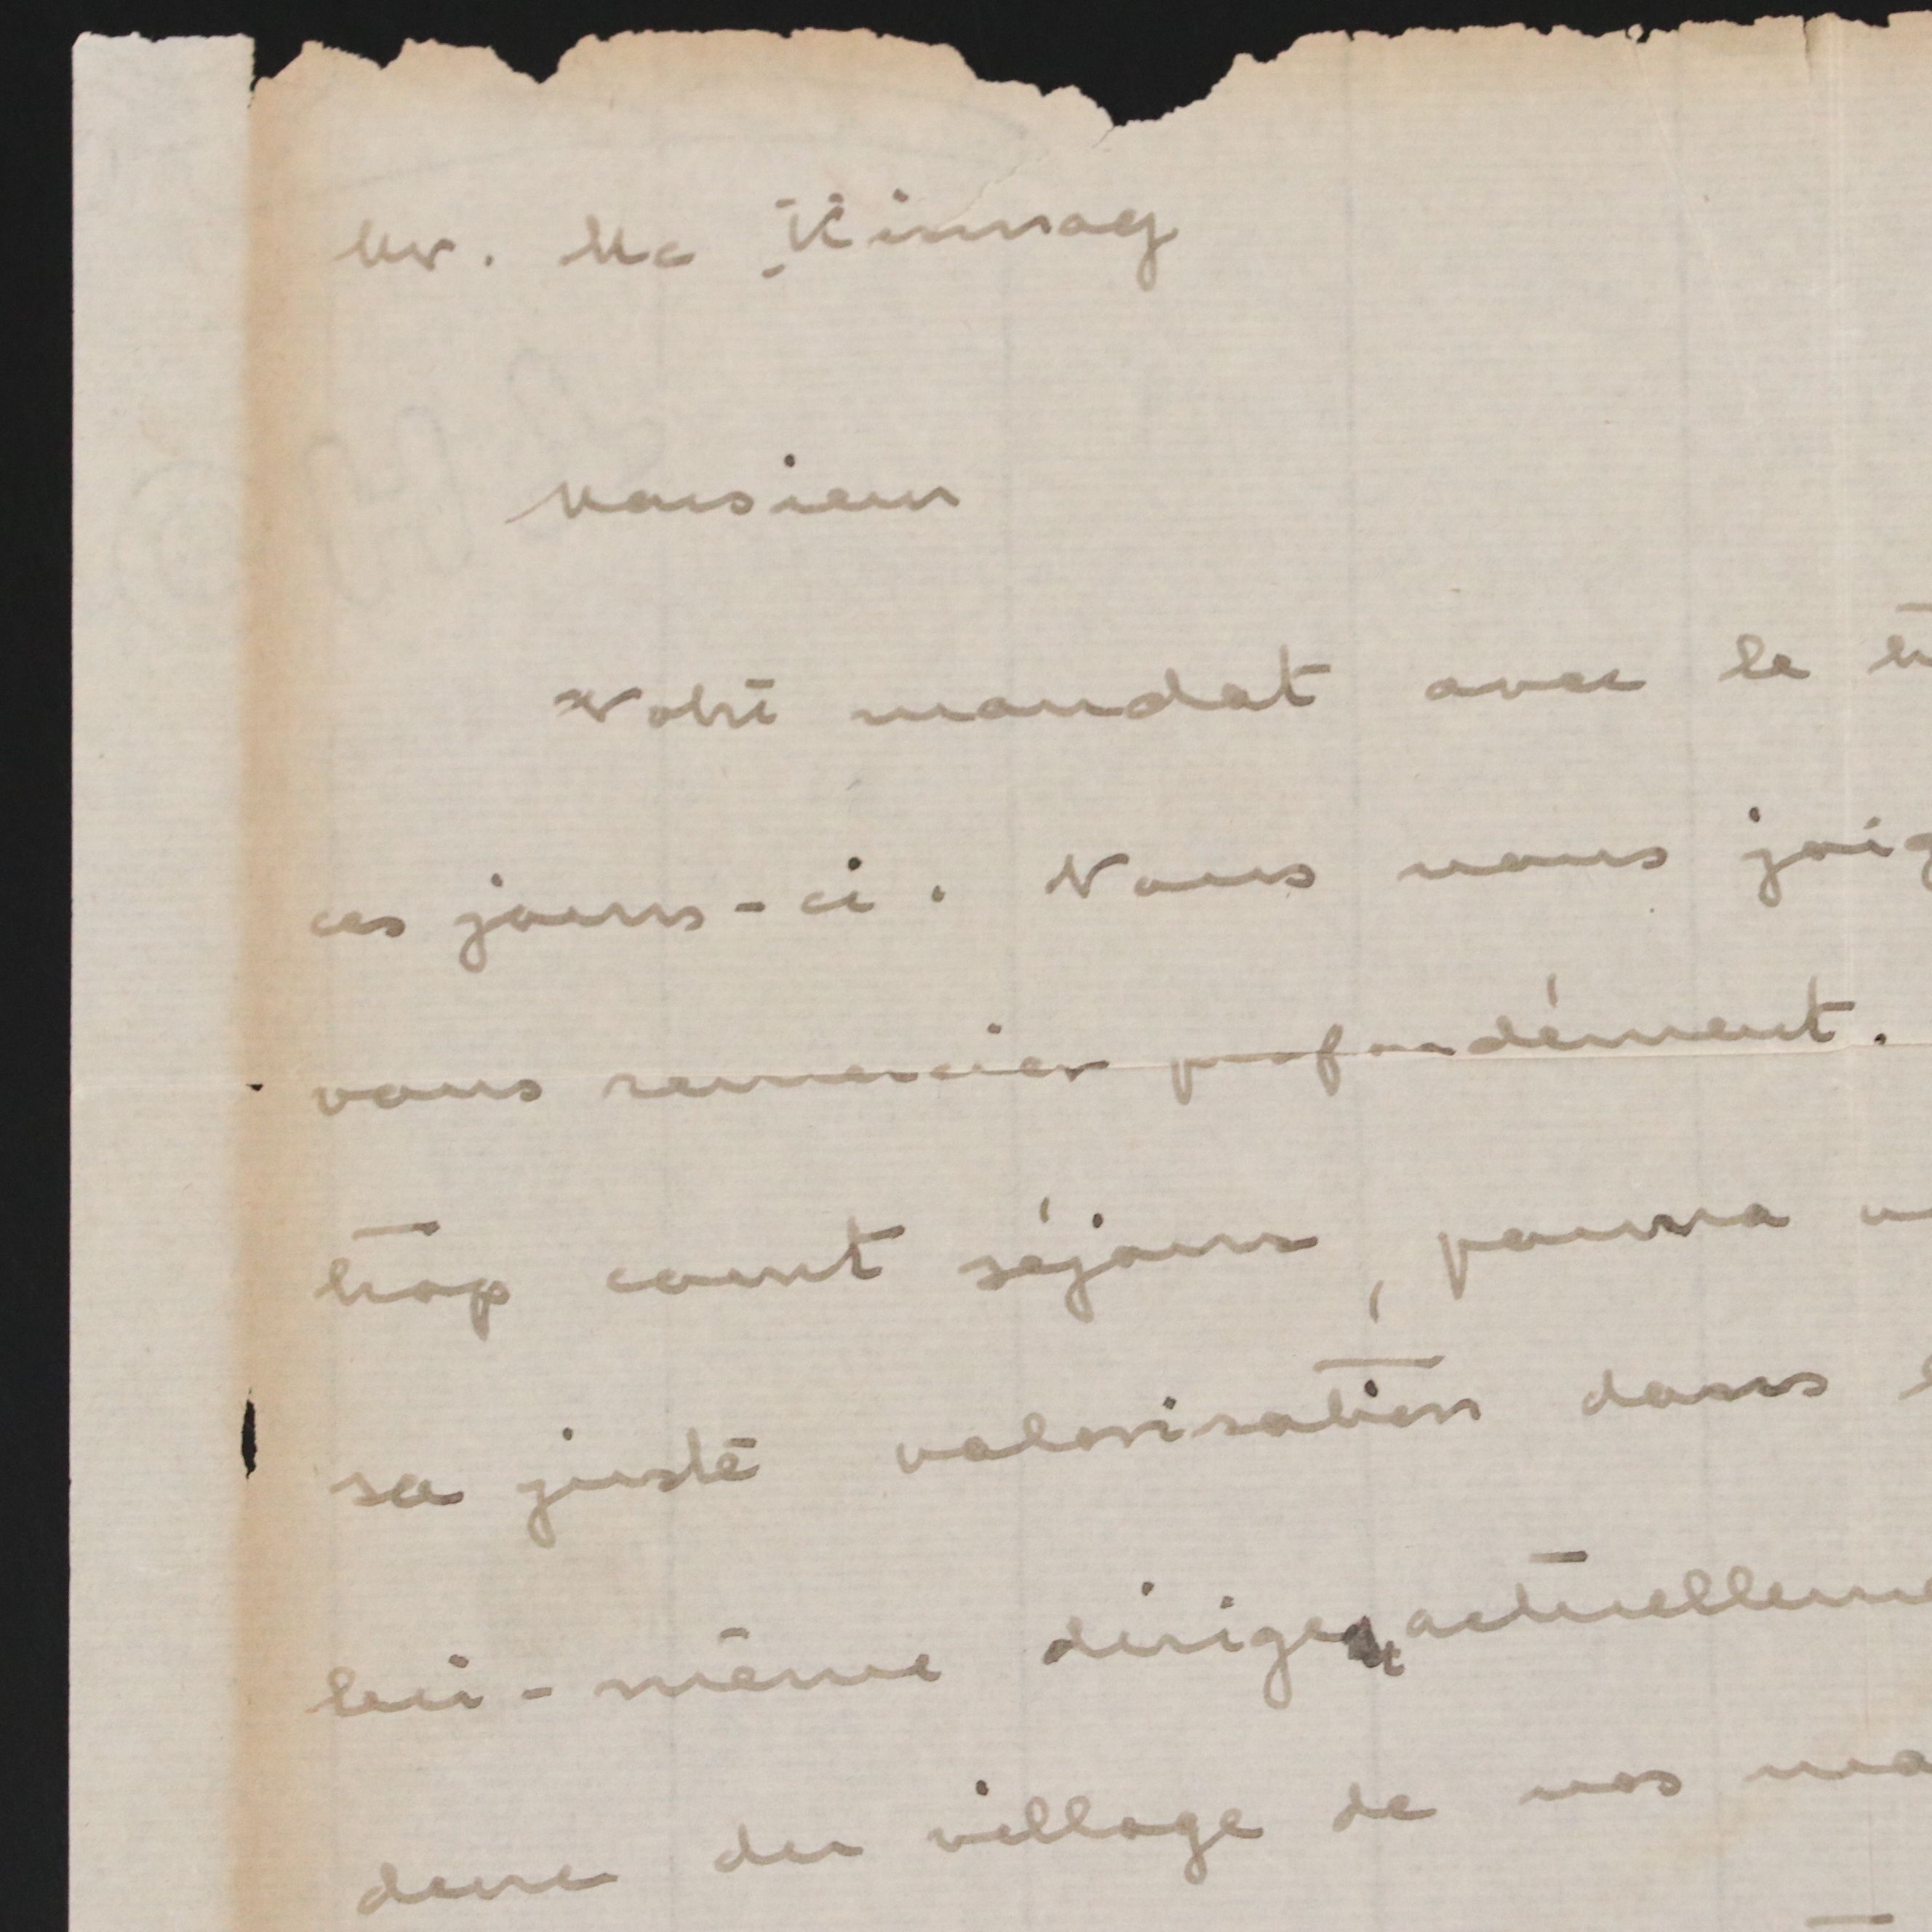 Mr. Mc Kinnog
Monsieur
Votre mandat avec le
ces jours-ci. Nous nous joig
vous remercier profondément.
trop court séjour, pourra
sa juste valorisation dans
lui-même dirige actuelleme
du village de nos ma